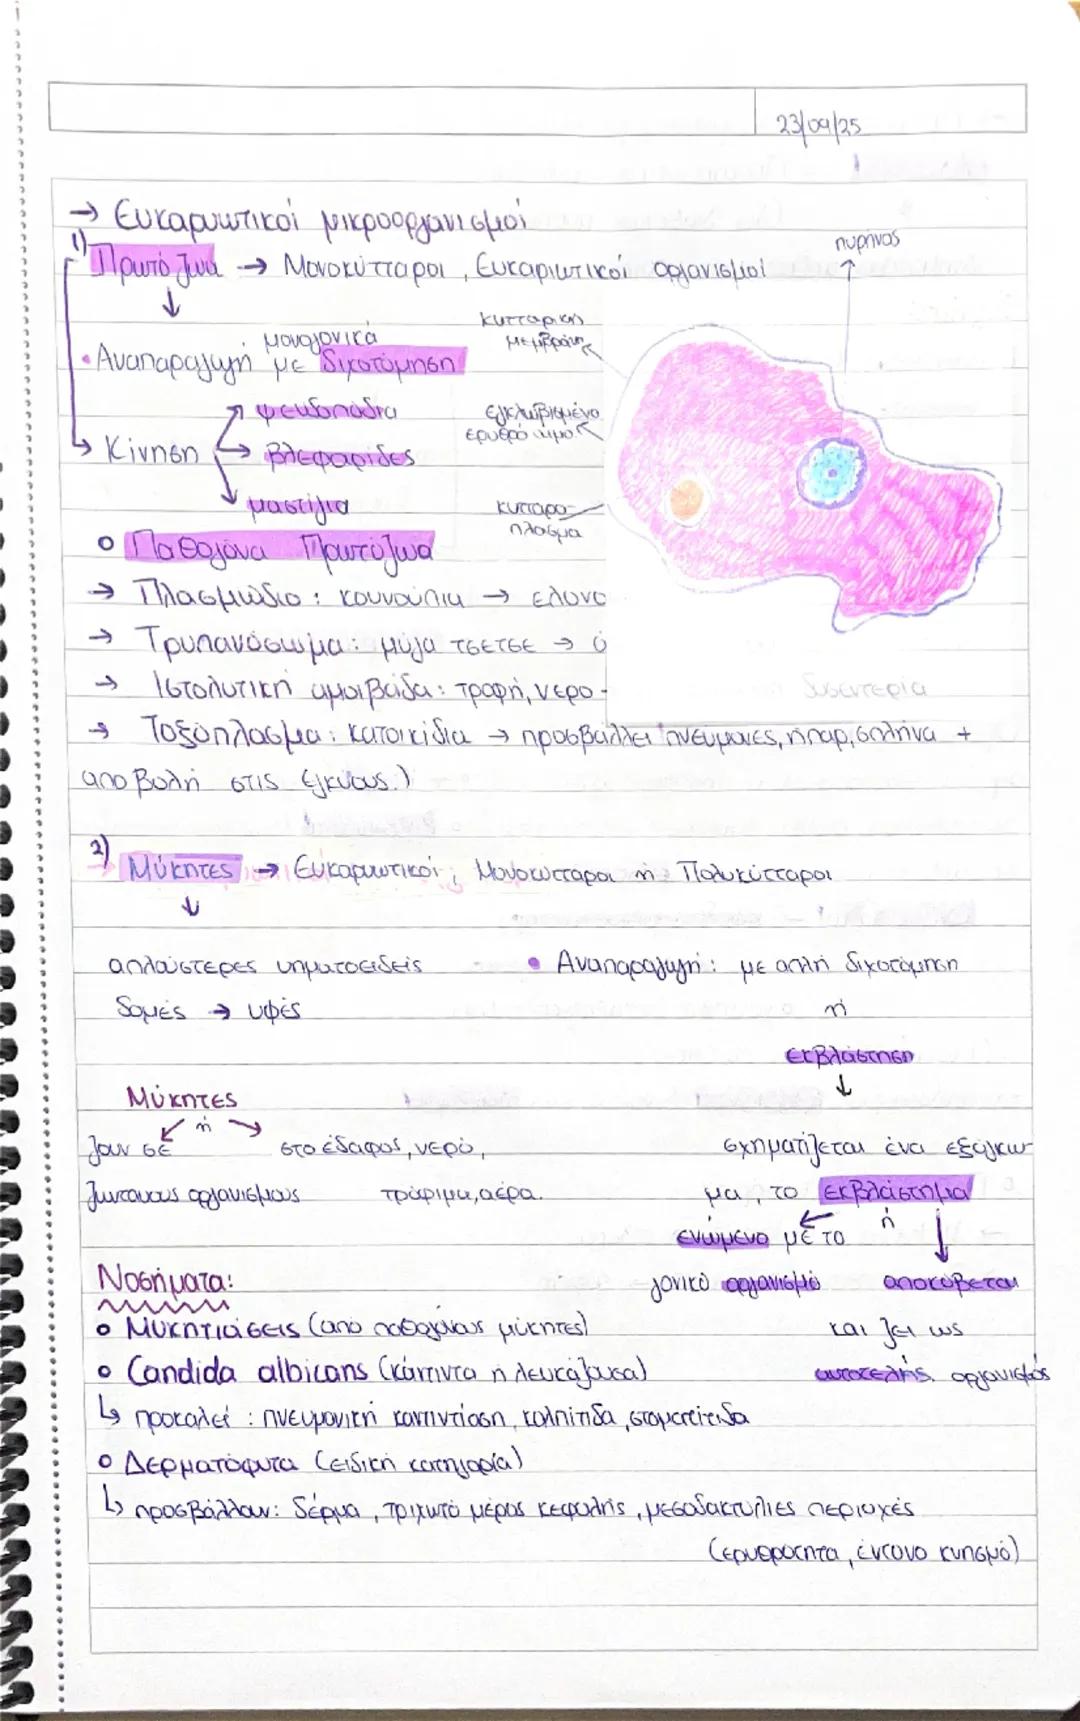 23/09/25
→ Ευκαρυωτικοί μικροοργανισμοί
1) Πρωτόζωα → Μονοκύτταροι, Ευκαριωτικοί οργανισμοί
πυρήνας
↓
κυτταρική μεμβράνη
• Αναπαραγωγή μονογονικά με διχοτόμηση
ψευδοπόδια
εγκλωβισμένο ερυθρό αιμο.
→ Κίνηση → βλεφαρίδες
μαστίγια
κυτταρο-πλασμα
ο Παθογόνα Πρωτόζωα
→ Πλασμώδιο : κουνούπια → ελονο
→ Τρυπανόσωμα : μύγα τσετσε → ύ
→ Ιστολυτική αμοιβάδα : τροφή, νερο - δυσεντερία
→ Τοξόπλασμα : κατοικίδια → προσβάλλει πνεύμονες, ήπαρ, σπλήνα +
αποβολή στις έγκυους.)
2) Μύκητες → Ευκαρυωτικοί, Μονοκύτταροι ή Πολυκύτταροι
↓
απλούστερες νηματοειδείς
δομές → υφές
• Αναπαραγωγή : με απλή διχοτόμηση
ή
εκβλάστηση
↓
σχηματίζεται ένα εξόγκω-
μα, το εκβλάστημα
ή
ενώμενο με το
γονικό οργανισμό
αποκόβεται
και ζει ως
αυτοτελής οργανισμός
Μύκητες
ή
ζουν σε
ζωντανους οργανισμους
στο έδαφος, νερό,
τρόφιμα, αέρα.
Νοσήματα:
ο Μυκητιάσεις (από παθογόνους μύκητες)
ο Candida albicans (κάντιντα ή λευκάζουσα)
↳ προκαλεί : πνευμονική καντιντίαση, κολπίτιδα, στοματίτιδα
ο Δερματόφυτα (ειδική κατηγορία)
↳ προσβάλλουν: δέρμα, τριχωτό μέρος κεφαλής, μεσοδακτύλιες περιοχές
(ερυθρότητα, έντονο κνησμό)